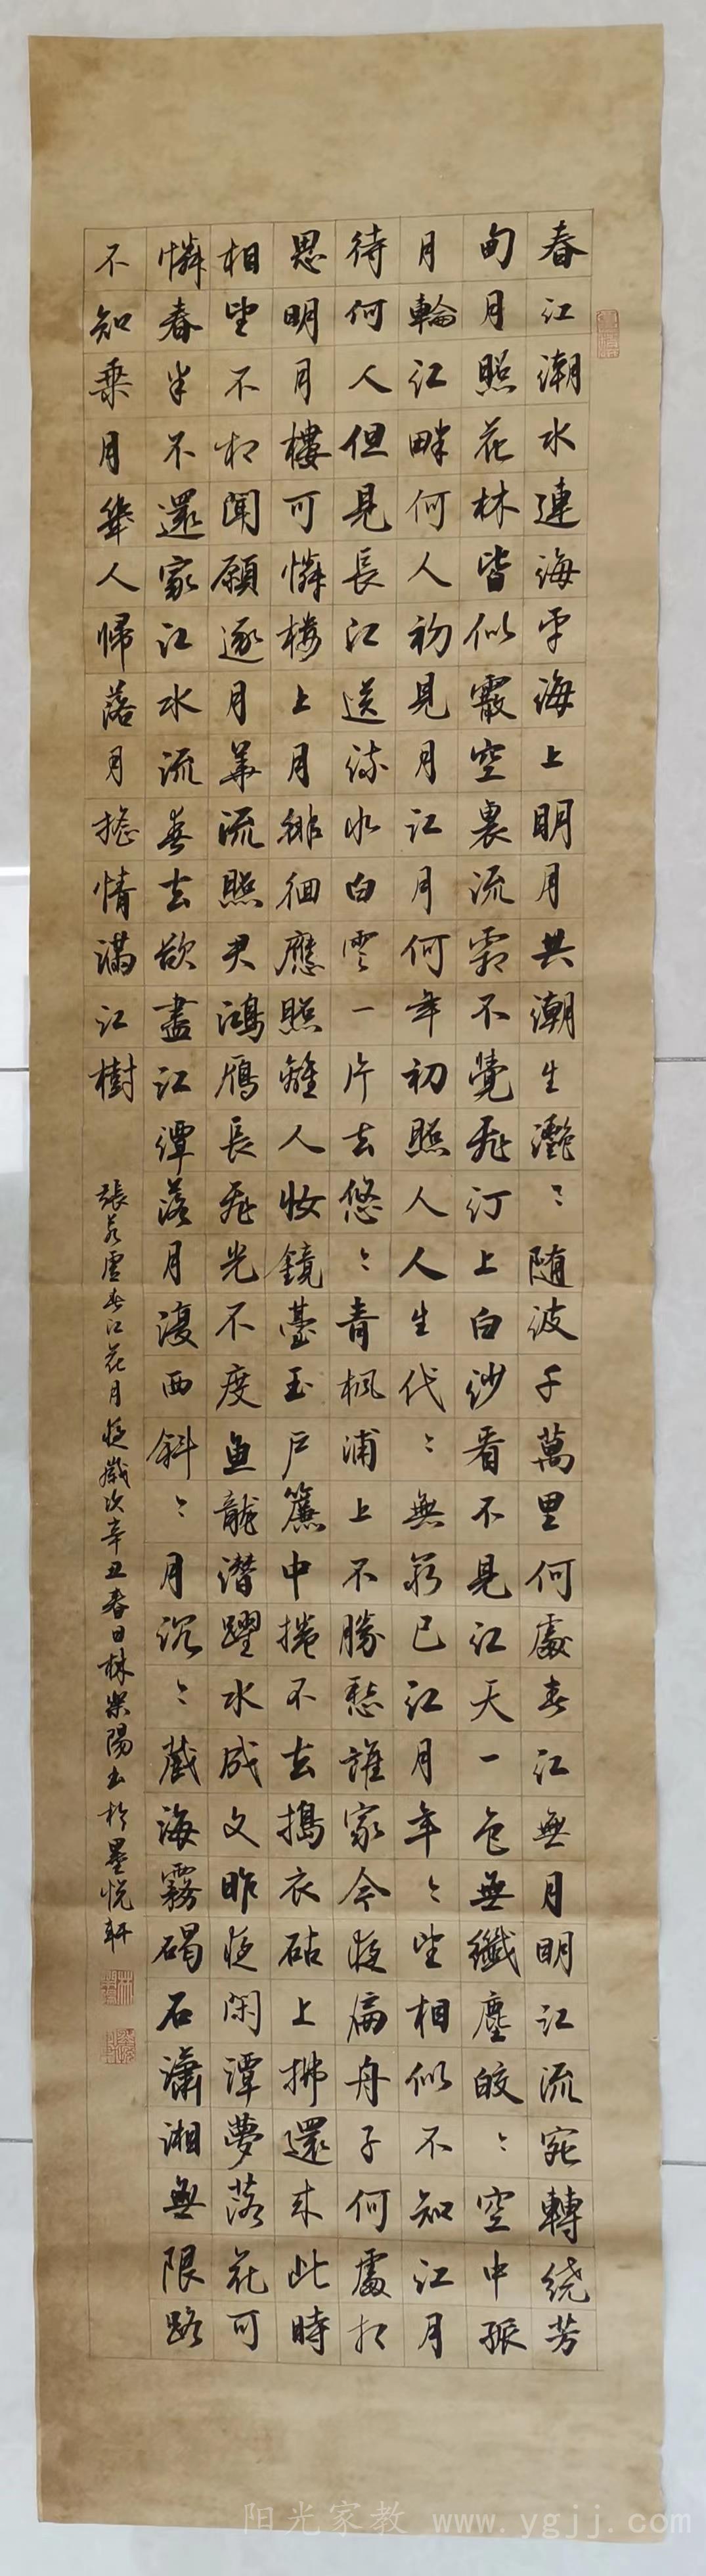 春江潮水連海平海上明月共潮生灧〻随波千萬里何處春江無月明江流宛轉绕芳
甸月照花林皆似霰空裏流霜不覺飛汀上白沙看不見江天一色無纖塵皎〻空中孤
月輪江畔何人初見月江月何年初照人人生代〻無窮已江月年〻望相似不知江月
待何人但見長江送流水白雲一片去悠〻青楓浦上不勝愁誰家今夜扁舟子何處相
思明月樓可憐樓上月徘徊應照離人妝鏡臺玉戶簾中捲不去搗衣砧上拂還來此時
相望不相聞願逐月華流照君鴻雁長飛光不度魚龍潛躍水成文昨夜閑潭夢落花可
憐春半不還家江水流春去欲盡江潭落月復西斜〻月沉〻藏海霧碣石瀟湘無限路
不知乘月幾人歸落月搖情滿江樹
張若虛春江花月夜歲次辛丑春日林樂陽書於墨悦軒
阳光家教 www.ygjj.com